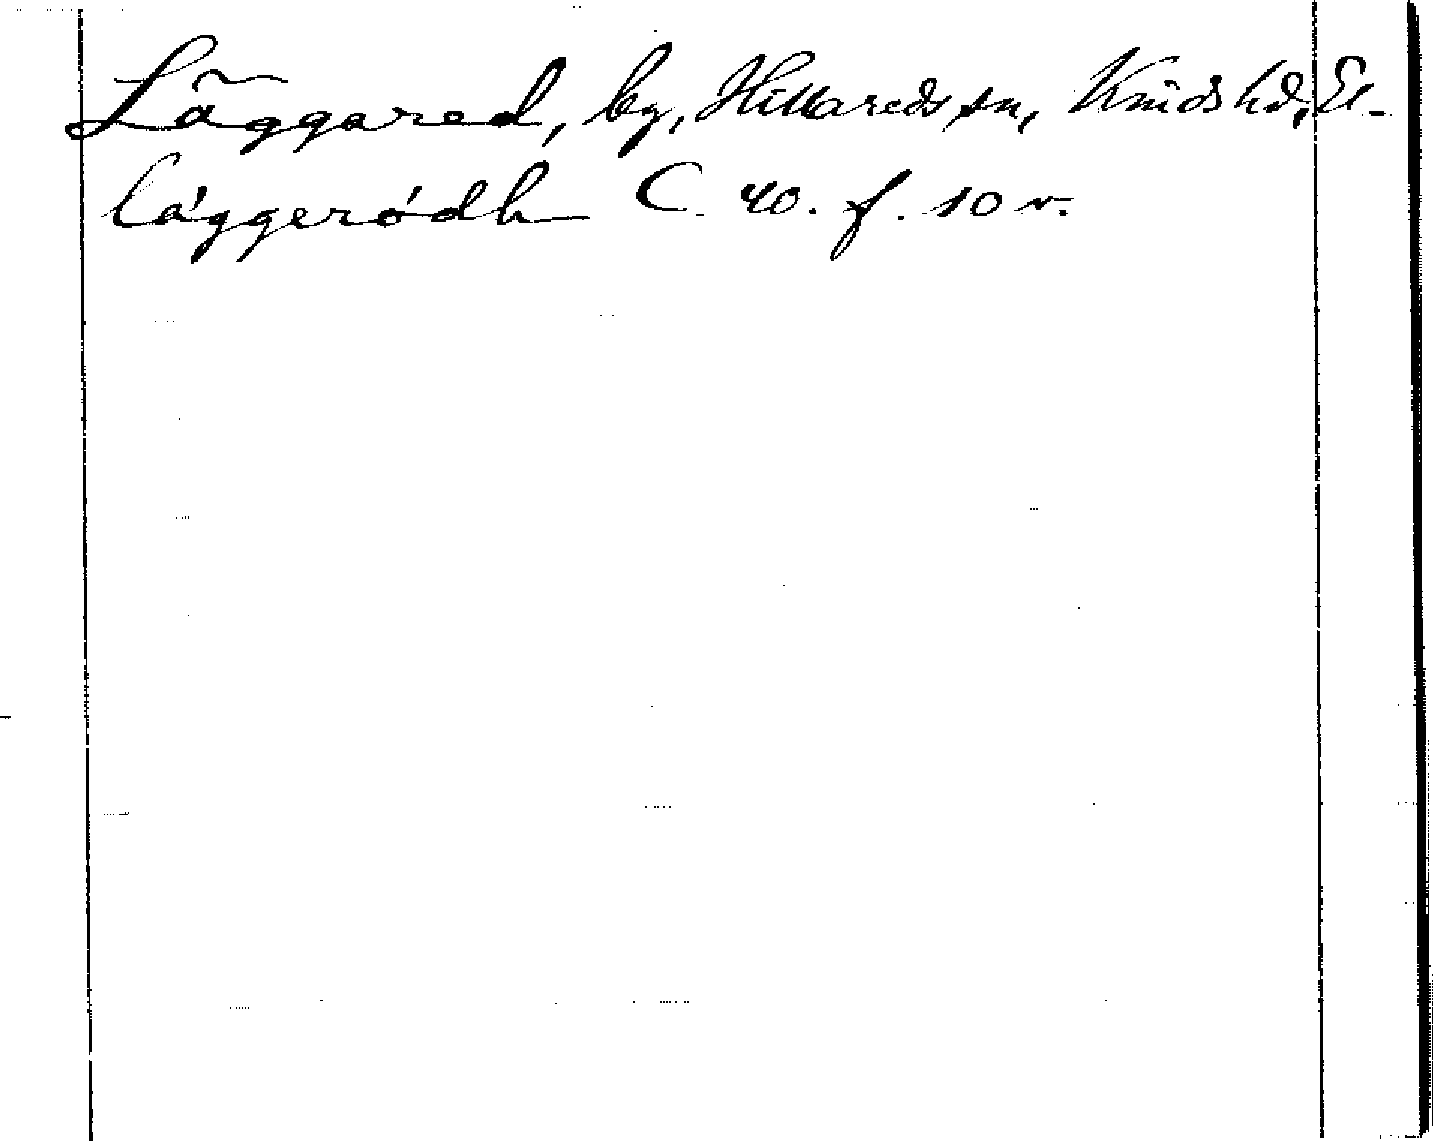 Läggared, by, Hillareds sn, Kinds hd, El.
läggerødh C. 40. f. 10 v.